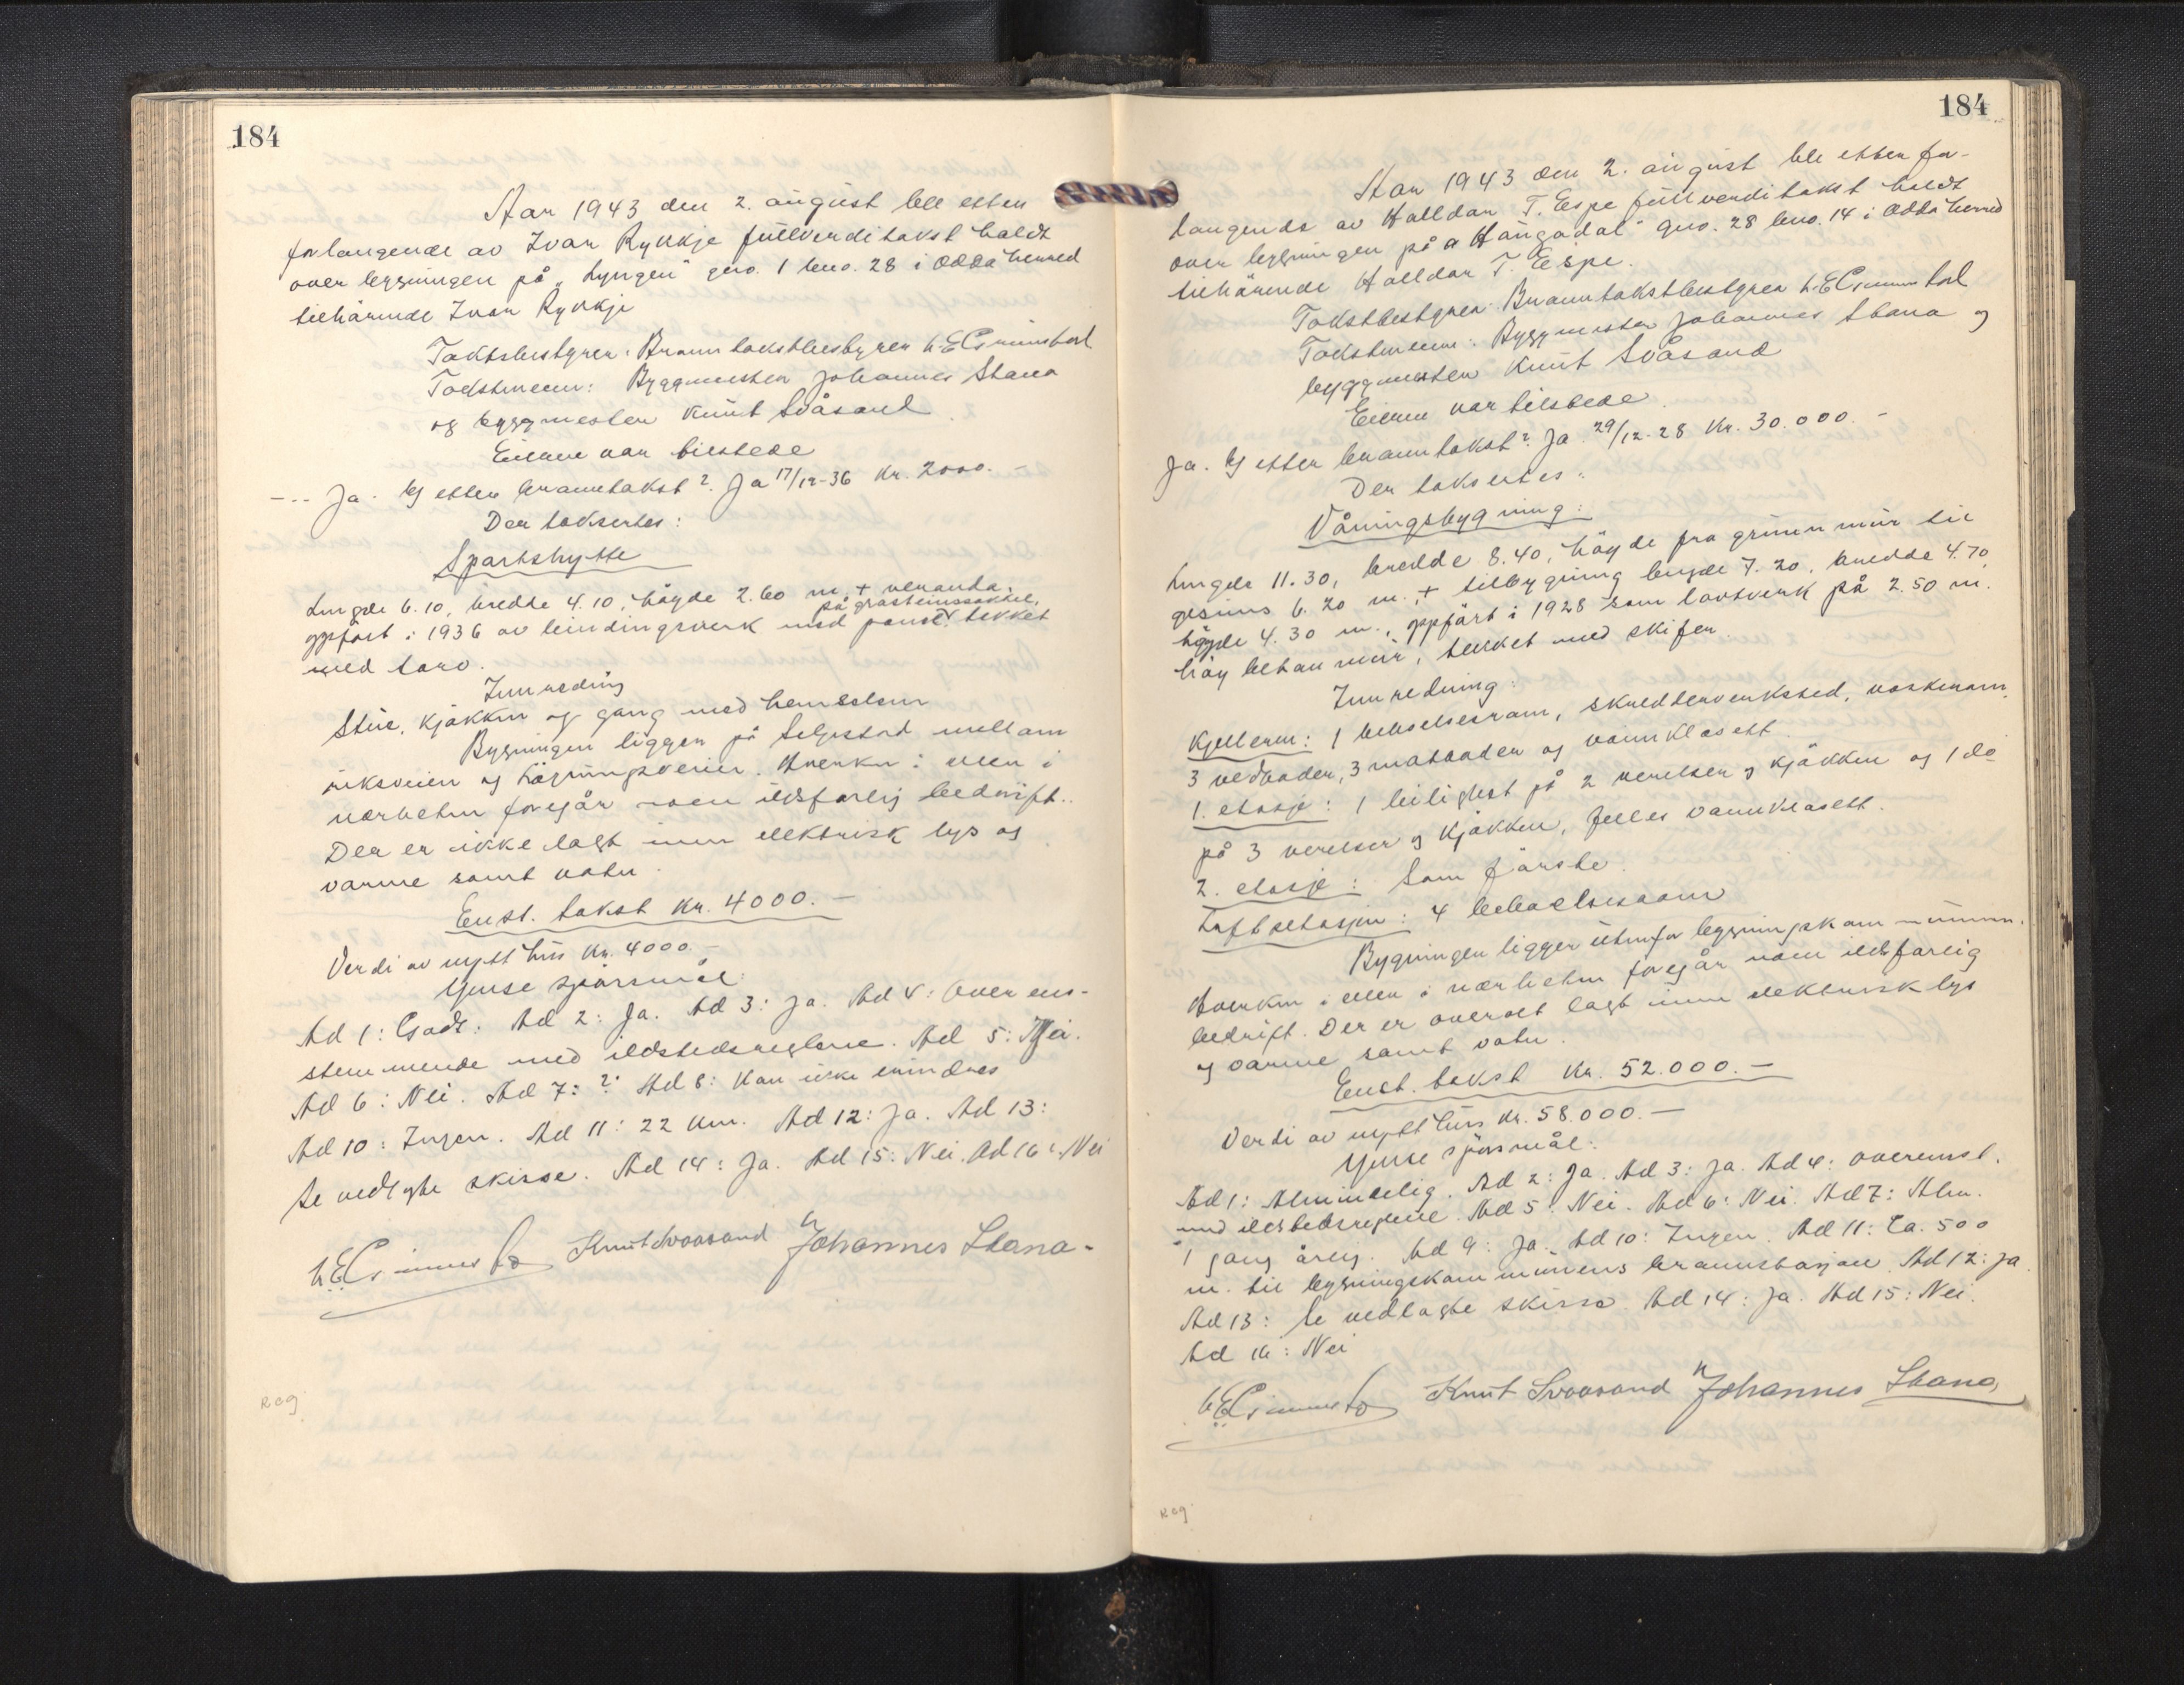 184
Aar 1943 den 2. august ble etter
forlangende av Ivar Rykkje fullverditakst haldt
over bygningen på „Lyngen" gno. 1 bno. 28 i Odda herred
tilhørende Ivar Rykkje
Takstbestyrer: Branntakstbestyrer
Takstmenn: Byggmester Johannes Stana
og byggmester Knut Svåsand
Eieren var tilstede
Ja. Ny etter branntakst? Ja 17/12-36 Kr. 2000.-
Der taksertes:
Sportshytte
Lengde 6.10, bredde 4.10, høyde 2.60 m, + veranda,
på gråsteinssokkel,
oppført i 1936 av bindingsverk med panel tekket
med torv.
Innreding
Stue, kjøkken og gang med hems
Bygningen ligger på Seljestad mellom
riksveien og Høgrun veien. Hverken i eller i
nærheten foregår noen ildsfarlig bedrift.
Der er ikke lagt inn elektrisk lys og
varme samt vatn.
Enst. takst Kr. 4000.-
Verdi av nytt hus Kr. 4000.-
Ymse spørsmål:
Ad 1: Godt. Ad 2: Ja. Ad 3: Ja. Ad 4: Overens-
stemmende med ildstedsreglene. Ad 5: Nei.
Ad 6: Nei. Ad 7: ? Ad 8: Kan ikke
Ad 10: Ingen. Ad 11: 22 km. Ad 12: Ja. Ad 13:
Se vedlagte skisse. Ad 14: Ja. Ad 15: Nei. Ad 16: Nei
Knut Svaasand Johannes Stana
Reg
184
Aar 1943 den 2. august ble etter for-
langende av Halldor T. Espe fullverditakst haldt
over bygningen på „Haugadal" gno. 28 bno. 14 i Odda herred
tilhørende Halldor T. Espe.
Takstbestyrer: Branntakstbestyrer
Takstmenn: Byggmester Johannes Stana og
byggmester Knut Svåsand
Eieren var tilstede
Ja. Ny etter branntakst? Ja. 29/12-28 Kr. 30.000.-
Der takseres:
Våningsbygning:
Lengde 11.30, bredde 8.40, høyde fra grunnmur til
gesims 6.20 m., + tilbygning lengde 7.20, bredde 4.70
høyde 4.30 m., oppført i 1928 som tovtverk på 2.50 m.
høy betonmur, tekket med skifer.
Innredning:
Kjelleren: 1 beboelsesrom, skredderverksted, vaskerom,
3 vedboder, 3 matboder og vannklosett.
1. etasje: 1 leilighet på 2 værelser og kjøkken og 1 do
på 3 værelser og kjøkken, felles vannklosett.
2. etasje: Som første.
Loftsetasjen: 4 beboelsesrom
Bygningen ligger utenfor bygningskommunen.
Hverken i eller i nærheten foregår noen ildsfarlig
bedrift. Der er overalt lagt inn elektrisk lys
og varme samt vatn.
Enst. takst Kr. 52.000.-
Verdi av nytt hus kr. 58.000.-
Ymse spørsmål:
Ad 1: Almindelig. Ad 2: Ja. Ad 3: Ja. Ad 4: Overenst.
med ildstedsreglene. Ad 5: Nei. Ad 6: Nei. Ad 7: Alm.
1 gang årlig. Ad 9: Ja. Ad 10: Ingen. Ad 11: Ca. 500
m. til bygningskommunens brannstasjon. Ad 12: Ja.
Ad 13: Se vedlagte skisse. Ad 14: Ja. Ad 15: Nei.
Ad 16: Nei
Knut Svaasand Johannes Stana
Reg